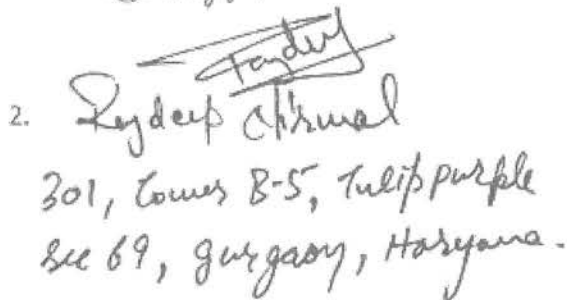 2. Rajdeep
301, Tower B-5, Tulip purple
sec 69, gurgaon, Haryana.